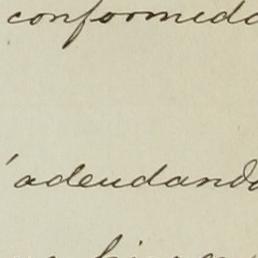 conformeda
adeudando